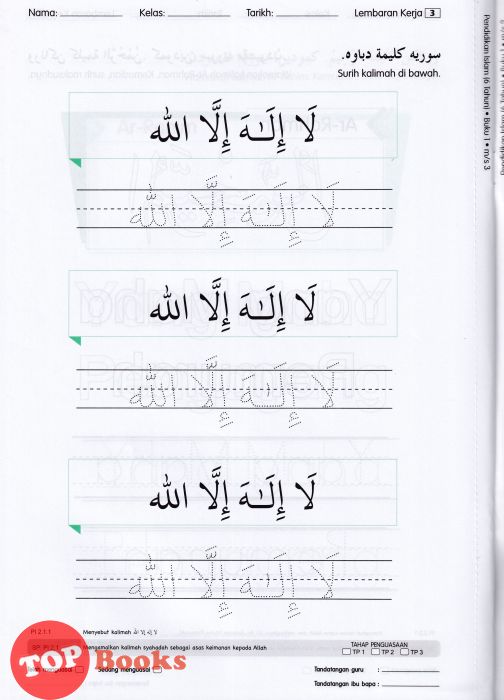 Nama: Kelas: Tarikh: Lembaran Kerja 3
سوريه كليمة دباوه.
Surih kalimah di bawah.
Pendidikan Islam (6 Tahun) • Buku 1 • m/s 3
لَا إِلَـٰهَ إِلَّا الله
لَا إِلَـٰهَ إِلَّا الله
لَا إِلَـٰهَ إِلَّا الله
لَا إِلَـٰهَ إِلَّا الله
لَا إِلَـٰهَ إِلَّا الله
لَا إِلَـٰهَ إِلَّا الله
PI 2.1.1 Menyebut kalimah لا إله إلا الله
SP PI 2.1 Mengamalkan kalimah syahadah sebagai asas keimanan kepada Allah
TAHAP PENGUASAAN
TP 1 TP 2 TP 3
Telah menguasai Sedang menguasai
Tandatangan guru :
Tandatangan ibu bapa :
TOP Books